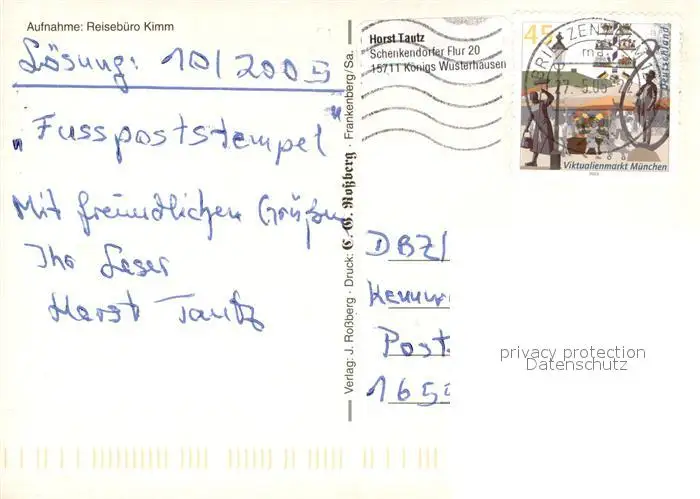 Aufnahme: Reisebüro Kimm
Lösung: 10/2005
"Fusspoststempel"
Mit freundlichen Grüßen
Ihr Leser
Horst Tautz
Verlag: J. Roßberg · Druck: C. G. Roßberg · Frankenberg/Sa.
Horst Tautz
Schenkendorfer Flur 20
15711 Königs Wusterhausen
45
Deutschland
BRIEFZENTRUM
Viktualienmarkt München
2003
DBZ/
Post
165
privacy protection
Datenschutz